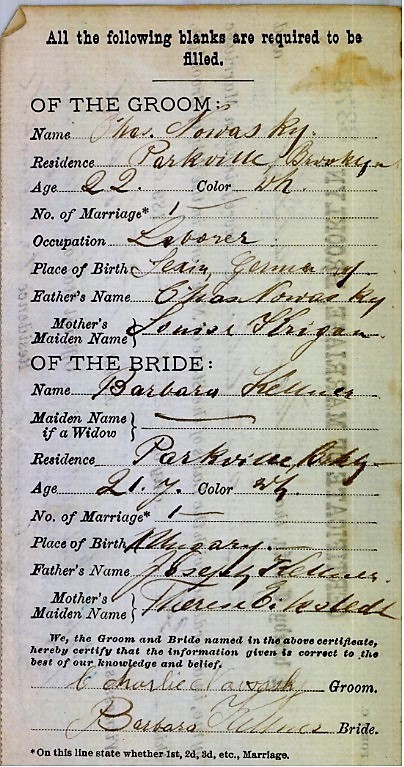 All the following blanks are required to be
filled.
OF THE GROOM:
Name Chas. Nowasky.
Residence Parkville Brooklyn
Age 22. Color Wh.
No. of Marriage* 1
Occupation Laborer
Place of Birth Germany
Father's Name Chas Nowasky
Mother's
Maiden Name
OF THE BRIDE:
Name Barbara Kellner
Maiden Name
if a Widow
Residence Parkville, Bkly
Age 21. y. Color Wh.
No. of Marriage* 1
Place of Birth Hungary.
Father's Name Joseph Kellner.
Mother's
Maiden Name
We, the Groom and Bride named in the above certificate,
hereby certify that the information given is correct to the
best of our knowledge and belief.
Charlie Groom.
Barbara Kellner Bride.
*On this line state whether 1st, 2d, 3d, etc., Marriage.